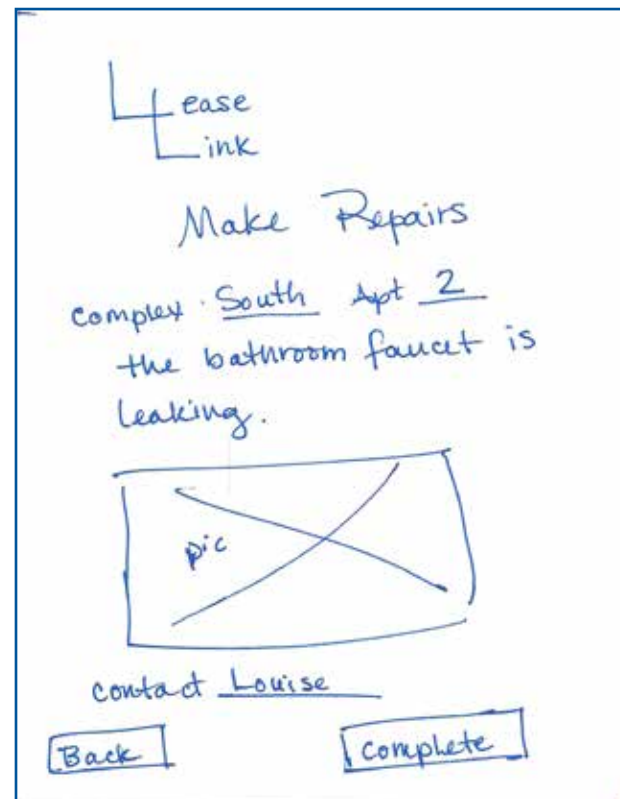 Lease
Link
Make Repairs
complex South Apt 2
the bathroom faucet is
leaking.
pic
contact Louise
Back
complete